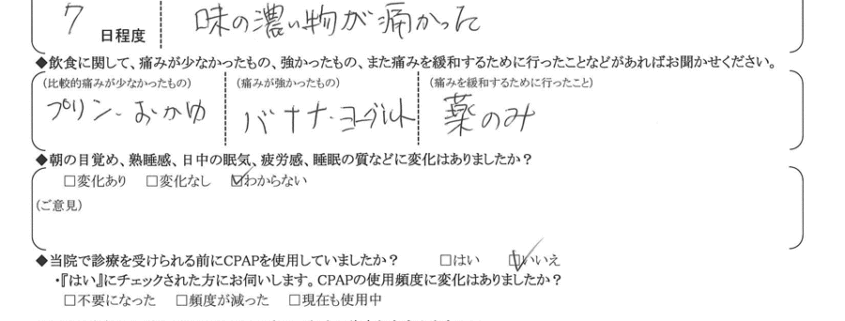 7 日程度 味の濃い物が痛かった
◆飲食に関して、痛みが少なかったもの、強かったもの、また痛みを緩和するために行ったことなどがあればお聞かせください。
(比較的痛みが少なかったもの) (痛みが強かったもの) (痛みを緩和するために行ったこと)
プリン・おかゆ バナナ・ヨーグルト 薬のみ
◆朝の目覚め、熟睡感、日中の眠気、疲労感、睡眠の質などに変化はありましたか？
□変化あり □変化なし ☑わからない
(ご意見)
◆当院で診療を受けられる前にCPAPを使用していましたか？ □はい ☑いいえ
・『はい』にチェックされた方にお伺いします。CPAPの使用頻度に変化はありましたか？
□不要になった □頻度が減った □現在も使用中